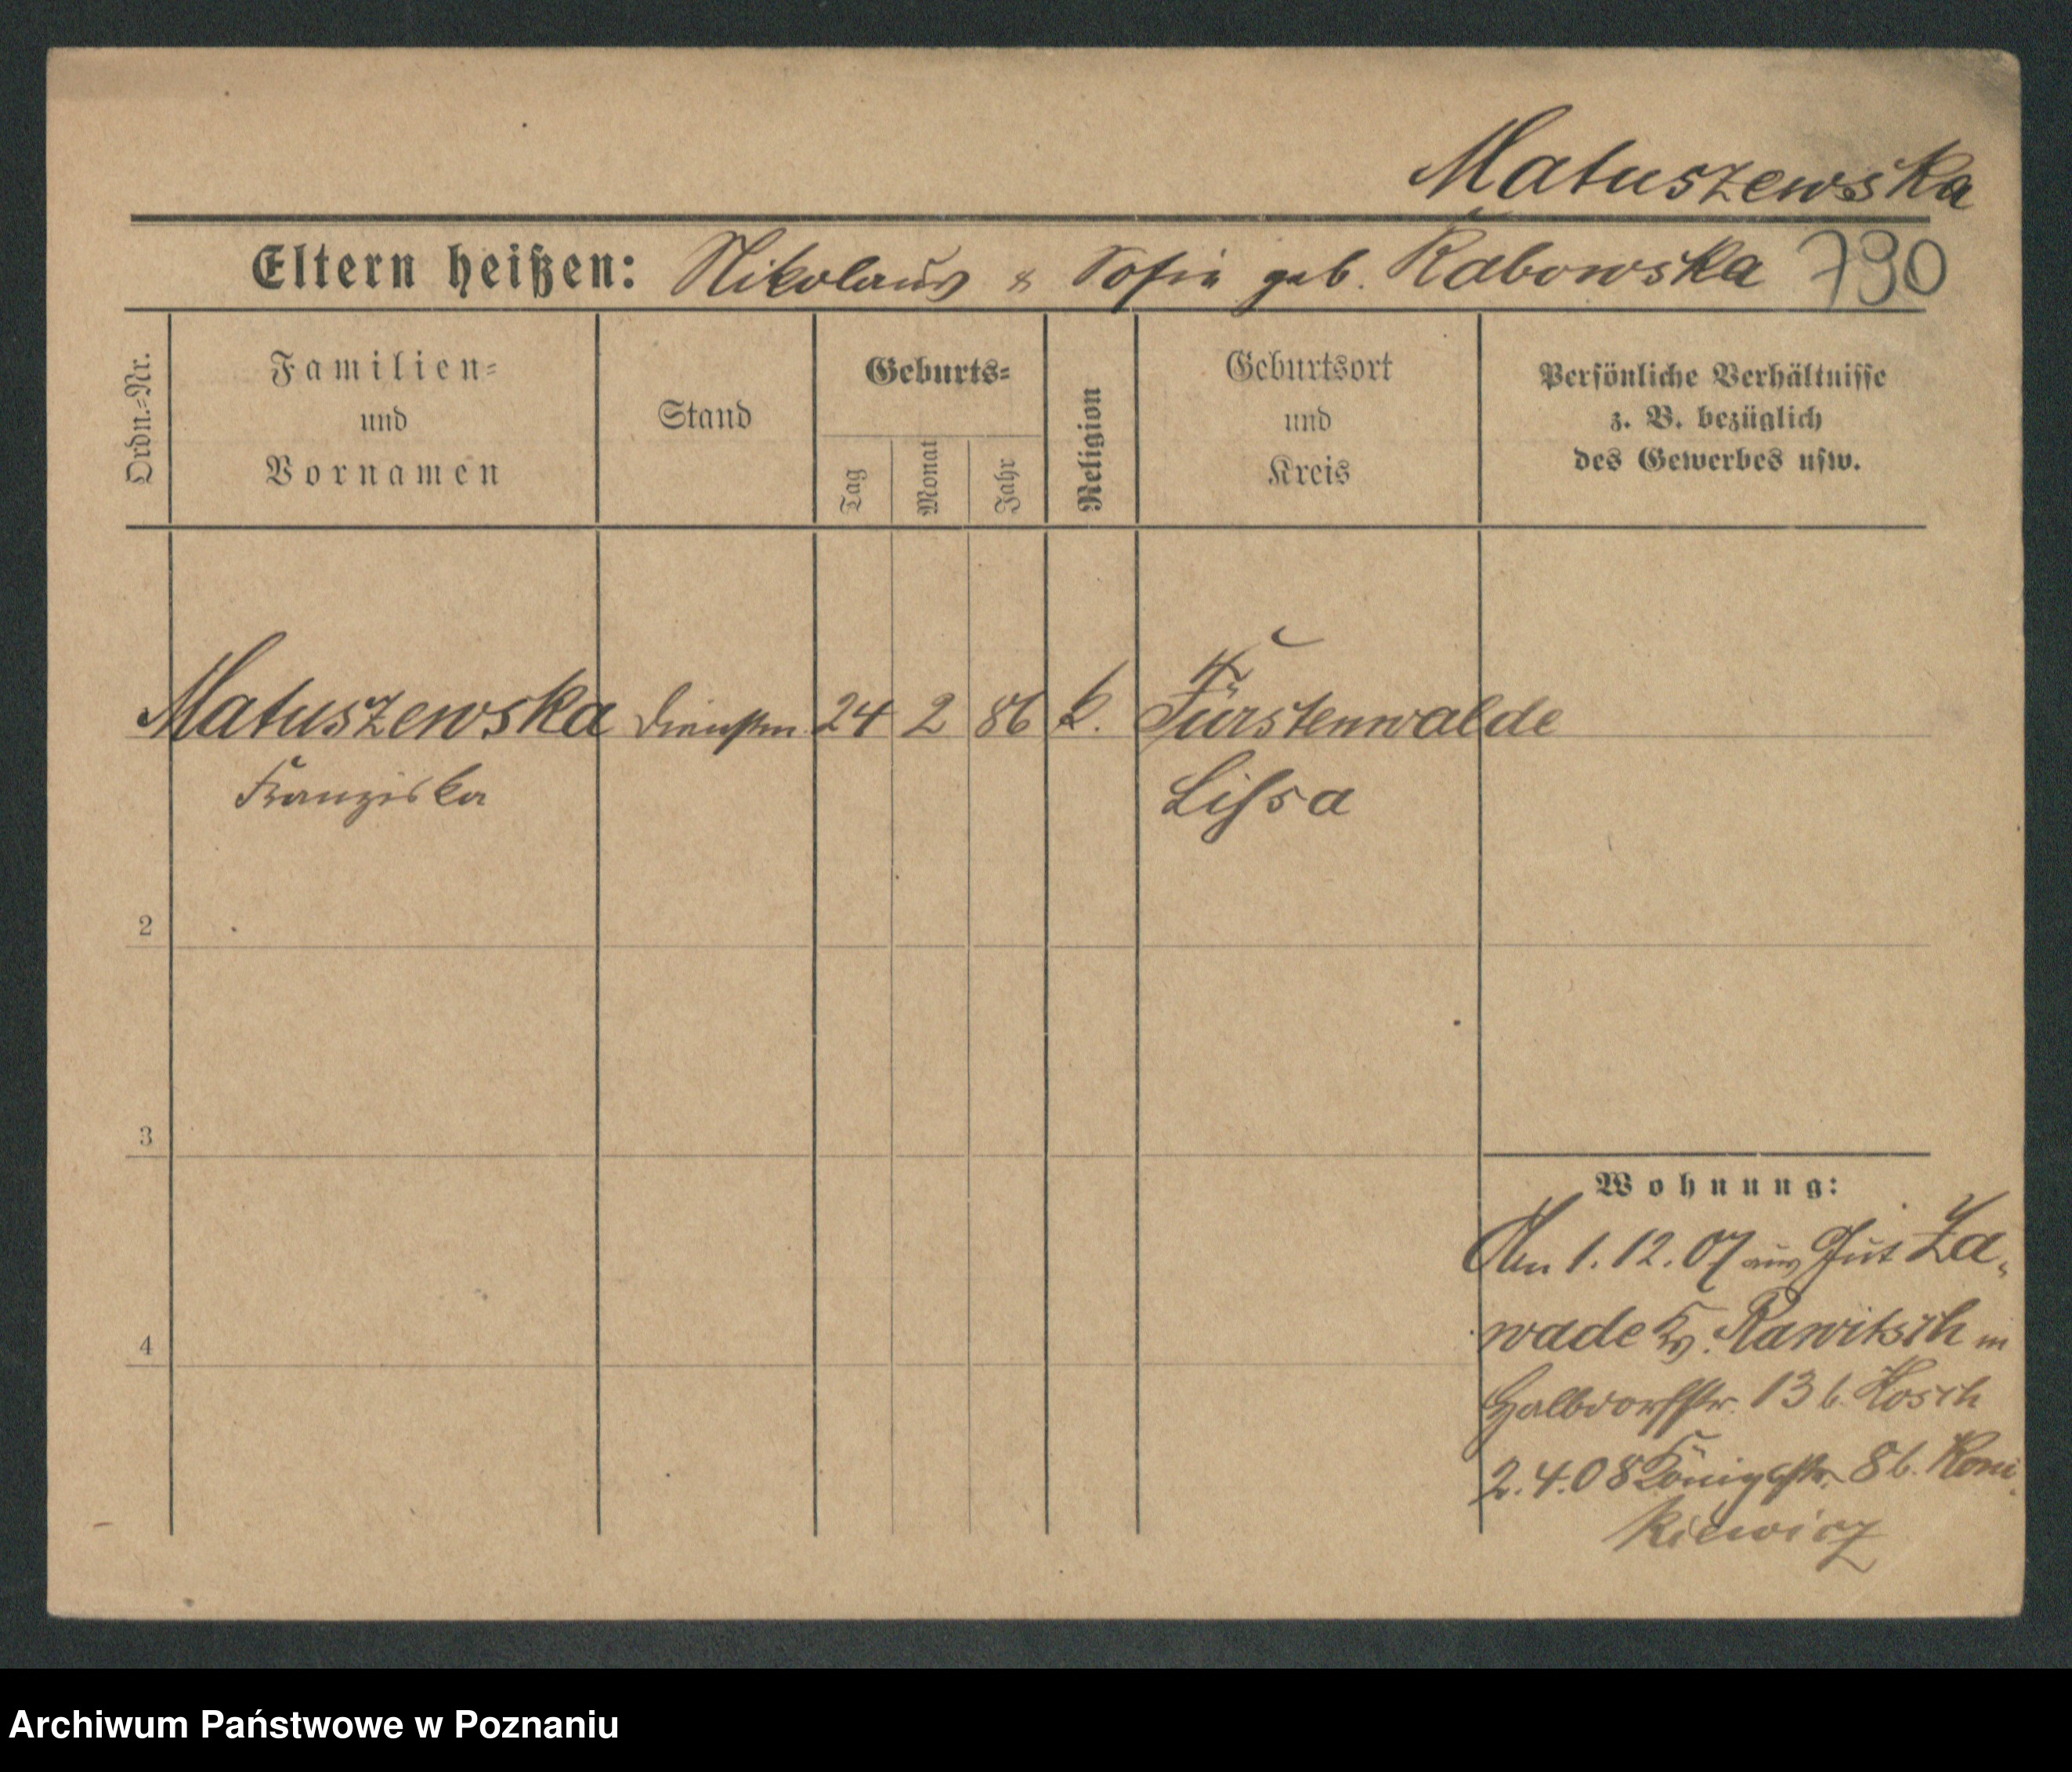 Matuszewska
Eltern heißen: Nikolaus & Sofie geb. Rabowska 790
Ordn.-Nr.
Familien-
und
Vornamen
Stand
Geburts-
Tag
Monat
Jahr
Religion
Geburtsort
und
Kreis
Persönliche Verhältnisse
z. B. bezüglich
des Gewerbes usw.
Matuszewska 24 2 86 k. Fürstenwalde
Franziska Lissa
2
3
4
Wohnung:
Am 1.12.07 aus Gut Za-
wade Kr. Rawitsch in
Halbdorfstr. 13 b. Kosch
2.4.08 Königstr. 8 b. Koni-
kiewicz
Archiwum Państwowe w Poznaniu